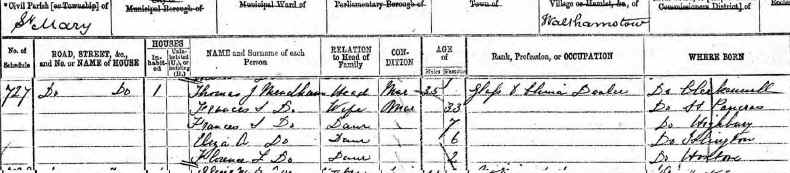 *Civil Parish [or Township] of
City or
Municipal Borough of
Municipal Ward of
Parliamentary Borough of
Town of
Village or Hamlet, &c., of
St Mary
Walthamstow
No. of Schedule
ROAD, STREET, &c., and No. or NAME of HOUSE
HOUSES
In-habit-ed
NAME and Surname of each Person
RELATION to Head of Family
CON-DITION
AGE of
Males Females
Rank, Profession, or OCCUPATION
WHERE BORN
727 Do Do 1 Thomas J Head Mar 35 Glass & China Dealer Do Clerkenwell
Frances S Do Wife Mar 33 Do St Pancras
Frances S Do Daur 7 Do Highbury
Eliza A Do Daur 6 Do Islington
Florence L Do Daur 2 Do Hoxton